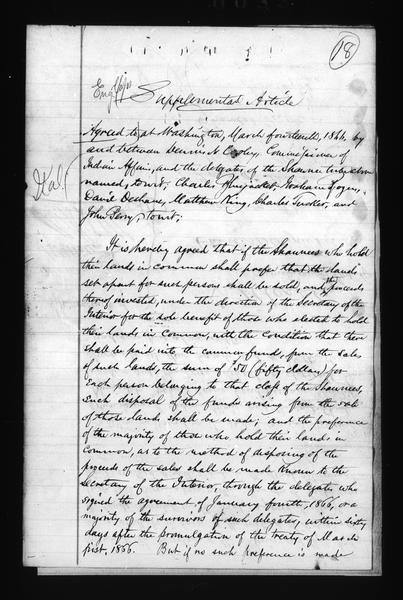 18
Supplemental Article
Agreed to at Washington, March fourteenth, 1866, by
and between Dennis N. Cooley, Commissioner of
Indian Affairs, and the delegates of the Shawnee tribe
named, to wit, Charles Bluejacket, Graham Rogers,
David Deshane, Matthew King, Charles Tucker, and
John Perry, to wit;
It is hereby agreed that if the Shawnees who hold
their lands in common shall prefer that the lands
set apart for such persons shall be sold, and the proceeds
thereof invested, under the direction of the Secretary of the
Interior for the sole benefit of those who elected to hold
their lands in common, with the condition that there
shall be paid into the common funds from the sales
of such lands, the sum of $50 (fifty dollars) for
each person belonging to that class of the Shawnees,
such disposal of the funds arising from the sale
of those lands shall be made; and the preference
of the majority of those who hold their lands in
common, as to the method of disposing of the
proceeds of the sales shall be made known to the
Secretary of the Interior, through the delegates who
signed the agreement of January fourth, 1866, or a
majority of the survivors of such delegates, within sixty
days after the promulgation of the treaty of March
first, 1866. But if no such preference is made